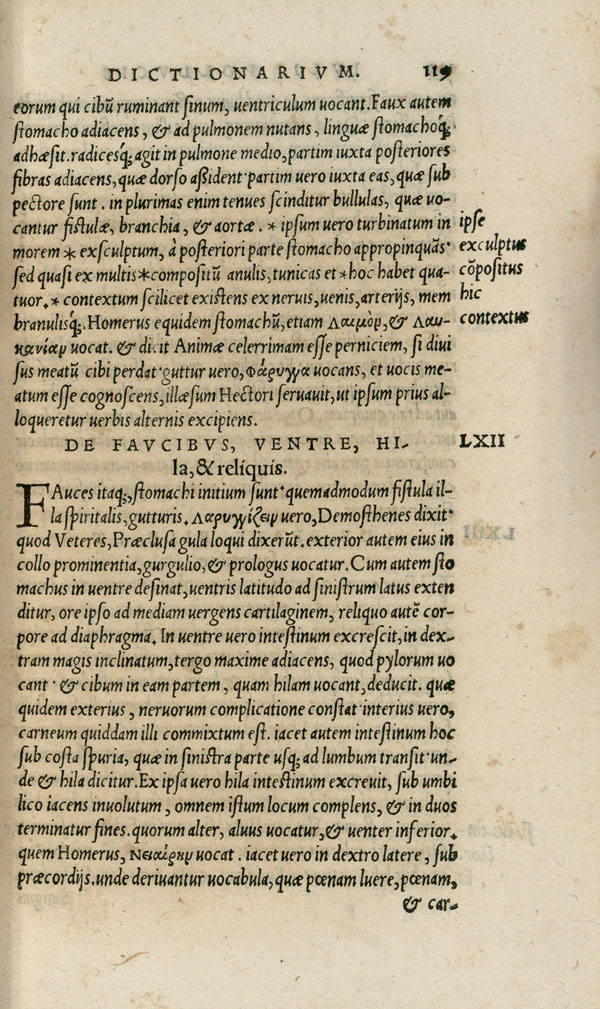 DICTIONARIVM. 119
eorum qui cibũ ruminant sinum, uentriculum uocant. Faux autem
stomacho adiacens, & ad pulmonem nutans, linguæ stomachoq́;
adhæsit. radicesq́; agit in pulmone medio, partim iuxta posteriores
fibras adiacens, quæ dorso aßident· partim uero iuxta eas, quæ sub
pectore sunt. in plurimas enim tenues scinditur bullulas, quæ uo-
cantur fistulæ, branchia, & aortæ. * ipsum uero turbinatum in
ipse
morem * exsculptum, à posteriori parte stomacho appropinquãs·
exculptus
sed quasi ex multis * compositũ anulis, tunicas et * hoc habet qua-
cõpositus
tuor. * contextum scilicet existens ex neruis, uenis, arterijs, mem
hic
branulisq́;. Homerus equidem stomachũ, etiam Λαιμὸρ, & Λαυ-
contextus
κανίαρ uocat. & dicit Animæ celerrimam esse perniciem, si diui
sus meatũ cibi perdat· guttur uero, Φάρυγγα uocans, et uocis me-
atum esse cognoscens, illæsum Hectori seruauit, ut ipsum prius al-
loqueretur uerbis alternis excipiens.
DE FAVCIBVS, VENTRE, HI-
LXII
la, & reliquis.
FAuces itaq;, stomachi initium sunt· quemadmodum fistula il-
la spiritalis, gutturis. Λαρυγγίζειρ uero, Demosthenes dixit·
quod Veteres, Præclusa gula loqui dixerũt. exterior autem eius in
collo prominentia, gurgulio, & prologus uocatur. Cum autem sto
machus in uentre desinat, uentris latitudo ad sinistrum latus exten
ditur, ore ipso ad mediam uergens cartilaginem, reliquo autẽ cor-
pore ad diaphragma. In uentre uero intestinum excrescit, in dex-
tram magis inclinatum, tergo maxime adiacens, quod pylorum uo
cant· & cibum in eam partem, quam hilam uocant, deducit. quæ
quidem exterius, neruorum complicatione constat· interius uero,
carneum quiddam illi commixtum est. iacet autem intestinum hoc
sub costa spuria, quæ in sinistra parte usq; ad lumbum transit· un-
de & hila dicitur. Ex ipsa uero hila intestinum excreuit, sub umbi
lico iacens inuolutum, omnem istum locum complens, & in duos
terminatur fines. quorum alter, aluus uocatur, & uenter inferior.
quem Homerus, Νειαίρηρ uocat. iacet uero in dextro latere, sub
præcordijs. unde deriuantur uocabula, quæ pœnam luere, pœnam,
& car-